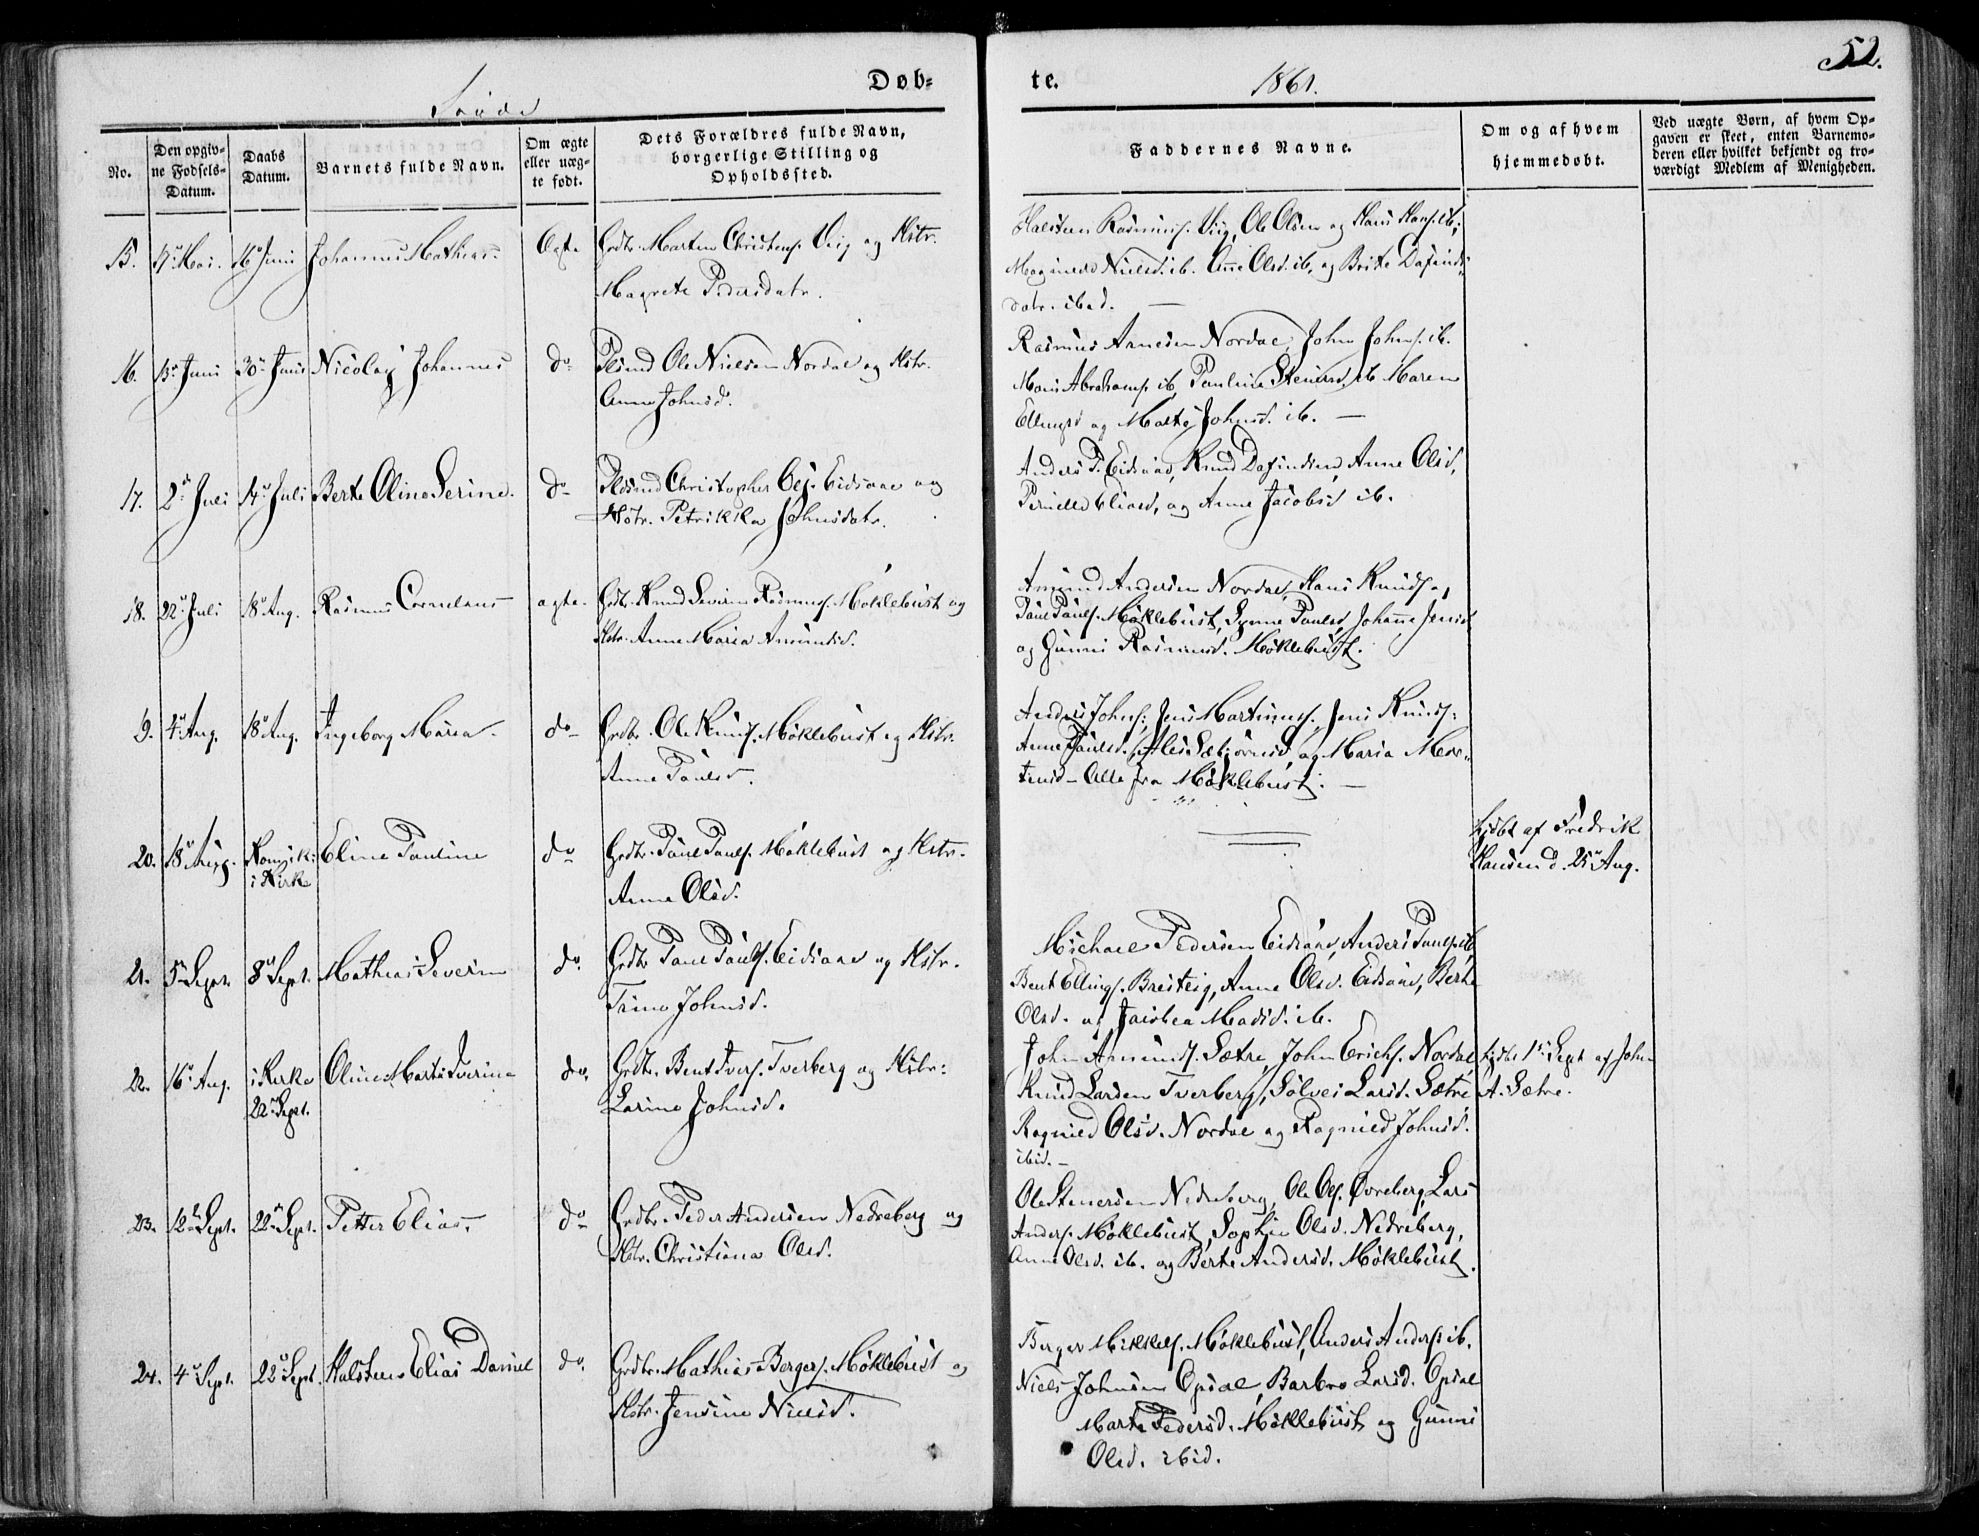 Døb-
te.
1861.
52.
No.
Den opgiv-
ne Fødsels-
Datum.
Daabs
Datum.
Barnets fulde Navn.
Om ægte
eller uæg-
te født.
Dets Forældres fulde Navn,
borgerlige Stilling og
Opholdssted.
Faddernes Navne.
Om og af hvem
hjemmedøbt.
Ved uægte Børn, af hvem Op-
gaven er skeet, enten Barnemo-
deren eller hvilket bekjendt og tro-
værdigt Medlem af Menigheden.
15. Mai. 16 Juni Johannes Mathias Ægte Grdbr. Morten Christens. Viig og Hstr.
Magrete Pedersdatr.
Halsteen Rasmuss. Viig, Ole Olsen og Hans Hans. ib.;
Nielsd. ib. Anne Olsd. ib. og Brite Dafinds
datr. ibid.
16. 13 Juni 30 Juni Nicolay Johannes do Plsmd Ole Nielsen Nordal og Hstr.
Anne Johnsd.
Rasmus Arnesen Nordal, John Johns. ib.
Hans Abrahams. ib, Pauline Steners. ib Maren
Ellingsd og Marte Johnsd. ib.
17. 2 Juli 14 Juli Berte Oline Serine. do Plsmd Christopher Ols. Eidsaae og
Hstr. Petrikke Johnsdatr.
Anders P. Eidsaae, Knud Dafindsen, Anne Olsd,
Pernille Eliasd, og Anne Jacobsd ib.
18. 22 Juli 18 Aug. Rasmus Cornelius ægte. Grdbr. Knud Severin Rasmuss. Møklebust og
Hstr. Anne Maria Amundsd.
Amund Andersen Nordal, Hans Knuds. og
Paul Pauls. Møklebust, Synne Paulsd, Johanne Jensd
og Gunni Rasmusd. Møklebust.
9. 4 Aug. 18 Aug. Ingeborg Maria do Grdbr. Ole Knuds. Møklebust og Hstr.
Anne Paulsd.
Anders Johns; Jens Martinus., Jens Knuds:
Anne Paulsd., og Maria Mor-
tensd - Alle fra Møklebust.
20. 18 Aug. i Kirke Eline Pauline do Grdbr. Paul Pauls. Møklebust og Hstr.
Anne Olsd.
hjdbt af Fredrik
Hansen d. 25 Aug.
21. 5 Sept. 8 Sept. Mathias Severin do. Grdbr Paul Pauls. Eidsaae og Hstr.
Trine Johnsd.
Michael Pedersen Eidsaae, Anders Pauls. ib,
Bent Ellings. Breiteig, Anne Olsd. Eidsaae, Berte
Olsd. og Jacobea Madsd. ib.
22. 16 Aug. i Kirke
22 Sept. Oline Marta Iverine do. Grdbr. Bent Ivers. Tverberg og Hstr:
Larine Johnsd.
John Amunds. Sætre, John Erichs. Nordal,
Knud Larsen Tverberg, Sølvei Larsd. Sætre
Ragnild Olsd. Nordal og Ragnild Johnsd.
ibid.
hjdbt 1 Sept af John
A. Sætre.
23. 12 Sept. 22 Sept. Petter Elias do Grdbr. Peder Andersen Nedreberg og
Hstr. Christiane Olsd.
Ole Stenersen Nedreberg, Ole Ols. Øvreberg, Lars
Anders. Møklebust, Sophie Olsd. Nedreberg,
Anne Olsd. ib. og Berte Andersd. Møklebust.
24. 4 Sept. 22 Sept. Halsteen Elias Daniel do. Grdbr. Mathias Bergers. Møklebust og
Hstr. Jensine Nielsd.
Berger Mikkels. Møklebust, Anders Anders. ib.
Niels Johnsen Opsal, Barbro Larsd. Opsal
Marte Pedersd. Møklebust og Gunni
Olsd. ibid.